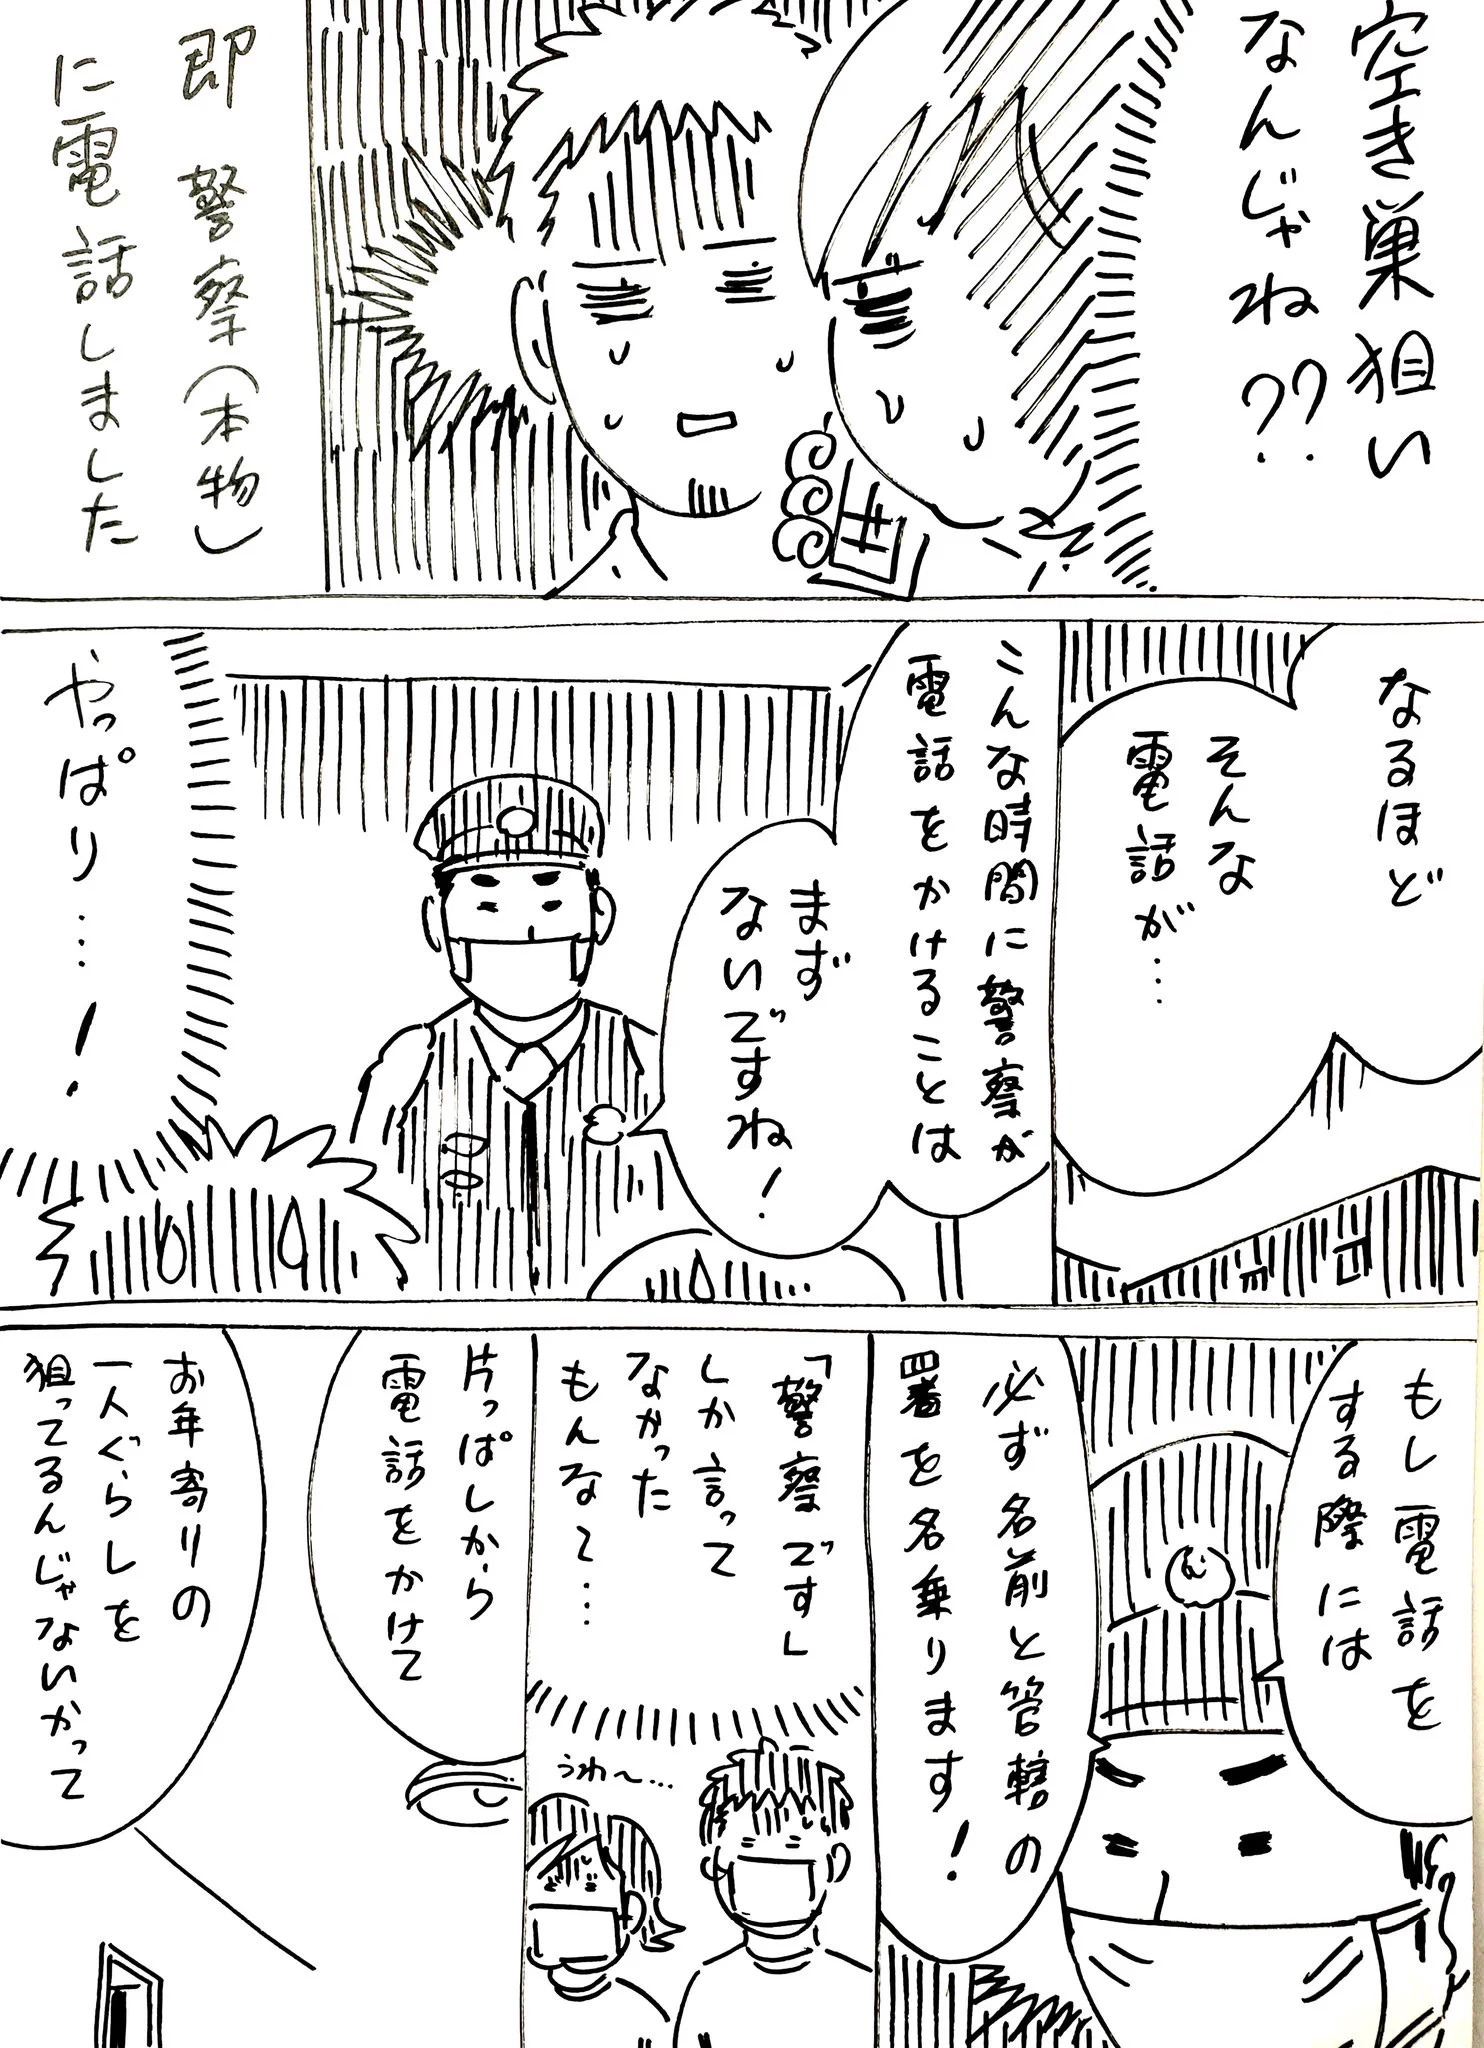 空き巣狙い
なんじゃね??
即 警察(本物)
に電話しました
なるほど
そんな
電話が…
こんな時間に警察が
電話をかけることは
まず
ないですね!
やっぱり…!
もし電話を
する際には
必ず名前と管轄の
署を名乗ります!
「警察です」
しか言って
なかった
もんなて…
うわ〜…
片っぱしから
電話をかけて
お年寄りの
一人ぐらしを
狙ってるんじゃないかって